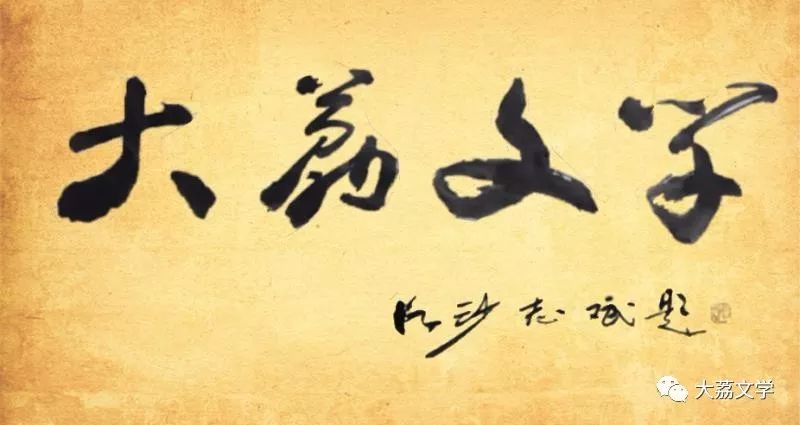 大荔文学
志斌题
大荔文学